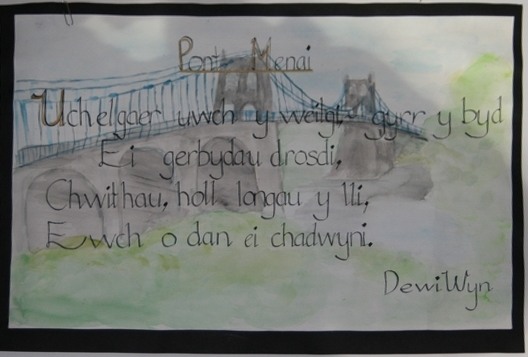 Pont Menai
Uchelgaer uwch y weilgi, gyrr y byd
Ei gerbydau drosdi,
Chwithau, holl longau y lli,
Ewch o dan ei chadwyni.
Dewi Wyn